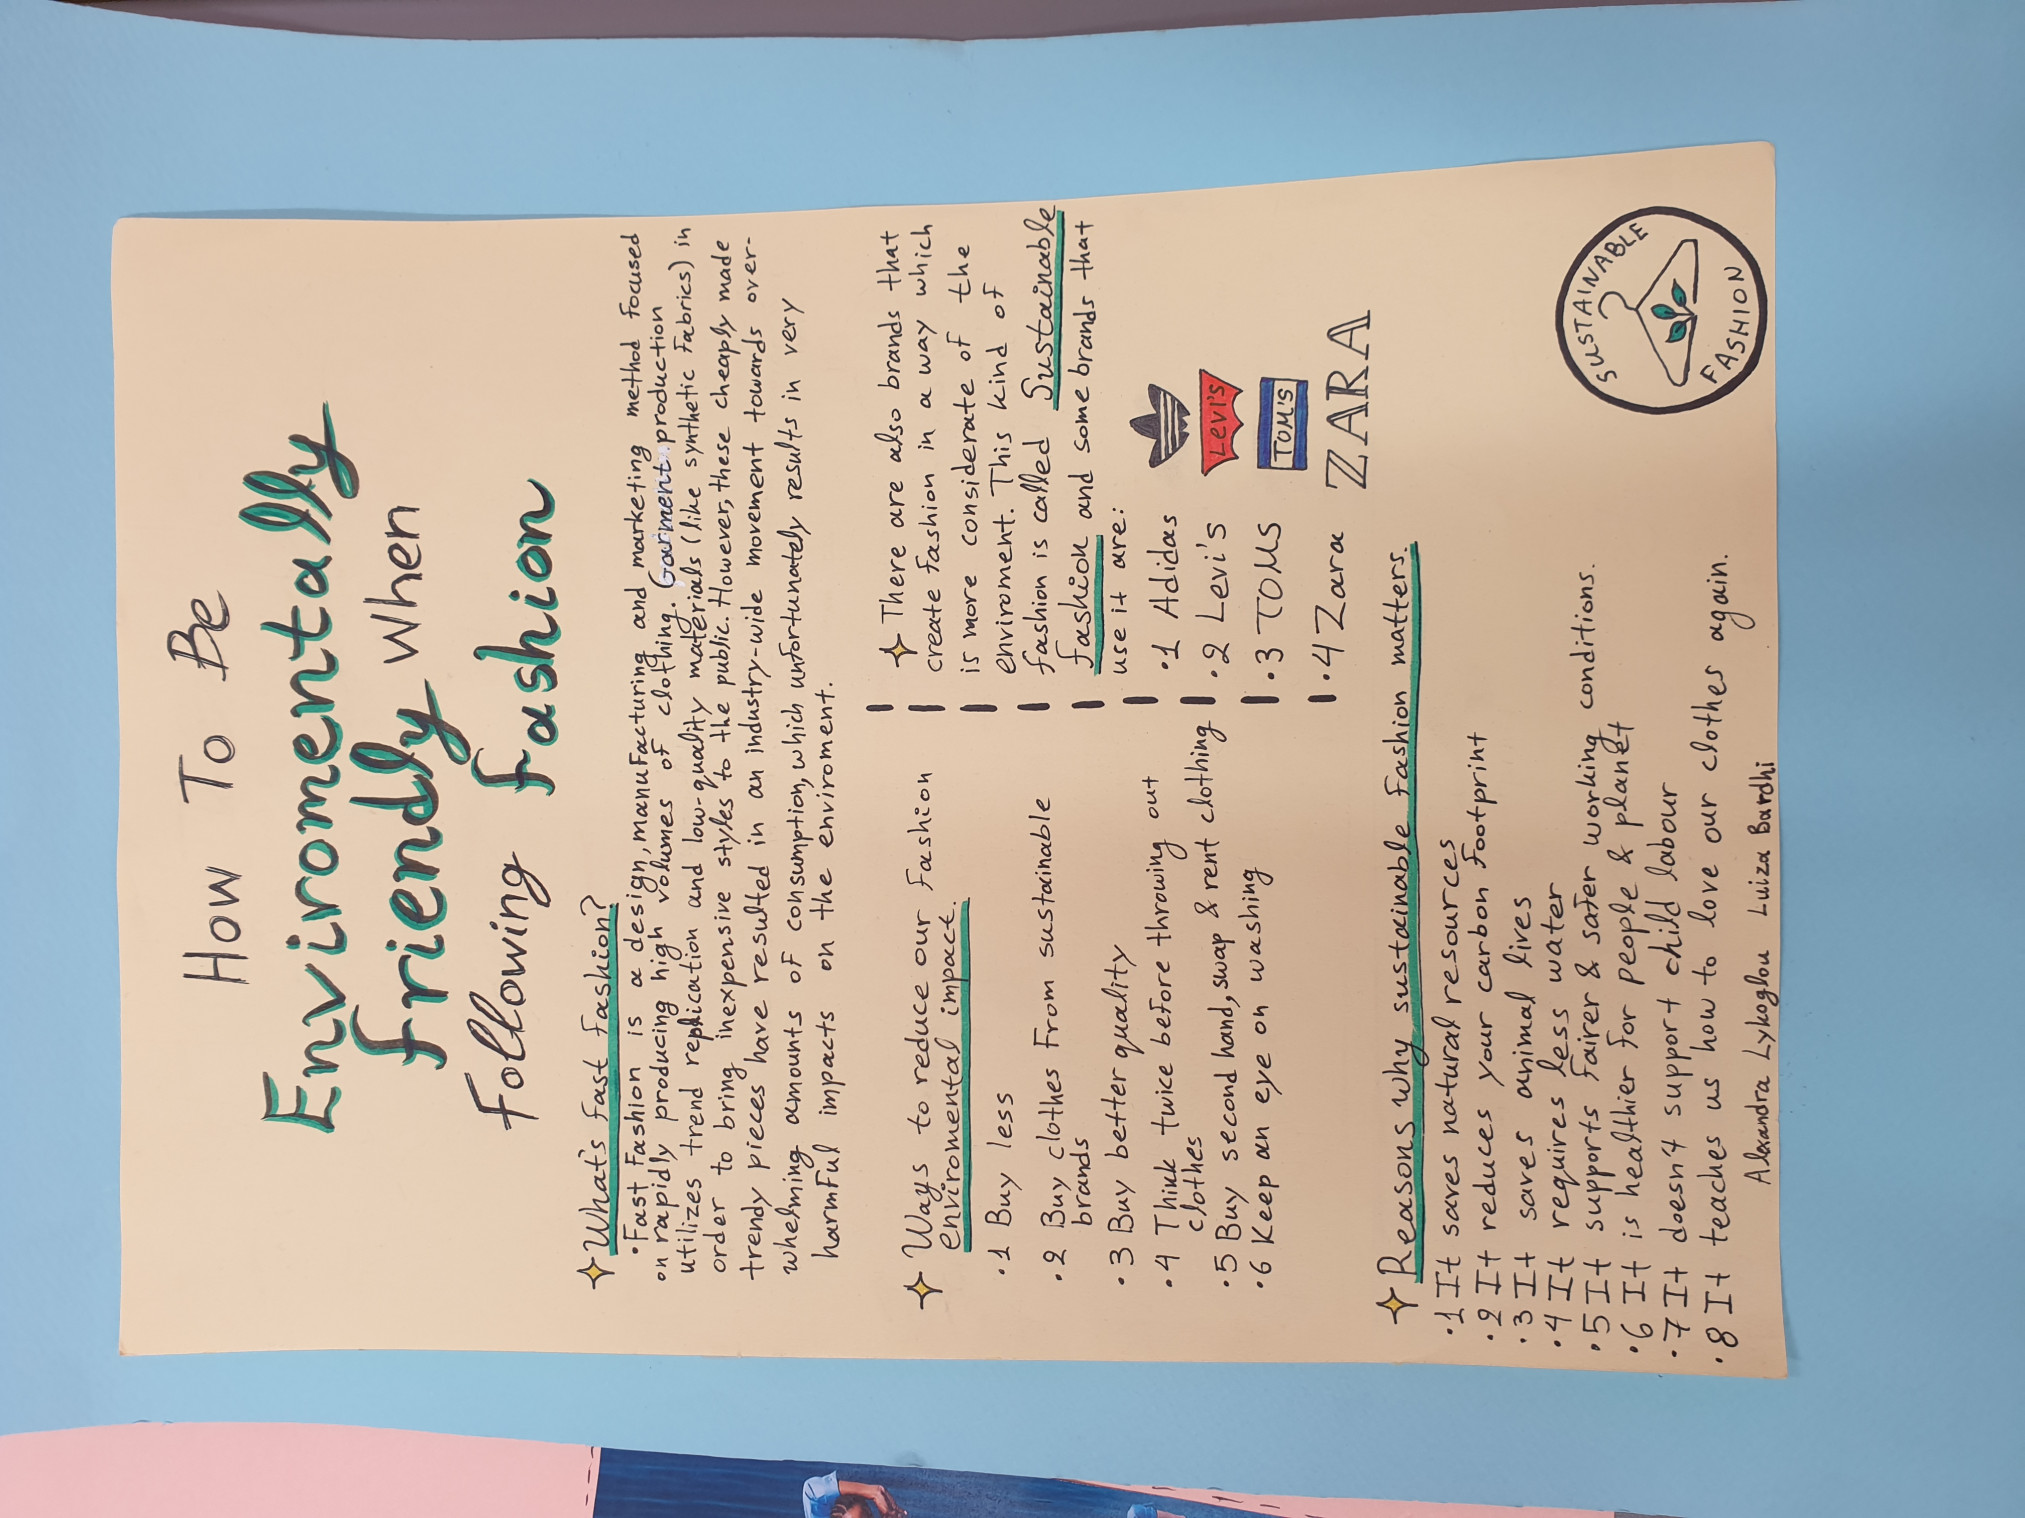 How To Be
Enviromentally
friendly when
Following fashion
What's fast fashion?
• Fast fashion is a design, manufacturing and marketing method focused
on rapidly producing high volumes of clothing. Garment production
utilizes trend replication and low-quality materials (like synthetic fabrics) in
order to bring inexpensive styles to the public. However, these cheaply made
trendy pieces have resulted in an industry-wide movement towards over-
whelming amounts of consumption, which unfortunately results in very
harmful impacts on the enviroment.
Ways to reduce our fashion
enviromental impact.
•1 Buy less
•2 Buy clothes from sustainable
brands
•3 Buy better quality
•4 Think twice before throwing out
clothes
•5 Buy second hand, swap & rent clothing
•6 Keep an eye on washing
There are also brands that
create fashion in a way which
is more considerate of the
enviroment. This kind of
fashion is called Sustainable
fashion and some brands that
use it are:
•1 Adidas
•2 Levi's
LEVI'S
•3 TOMS
TOM'S
•4 Zara
ZARA
Reasons why sustainable fashion matters.
•1 It saves natural resources
•2 It reduces your carbon footprint
•3 It saves animal lives
•4 It requires less water
•5 It supports fairer & safer working conditions.
•6 It is healthier for people & planet
•7 It doesn't support child labour
•8 It teaches us how to love our clothes again.
Alexandra Lykoglou Luiza Bardhi
SUSTAINABLE
FASHION